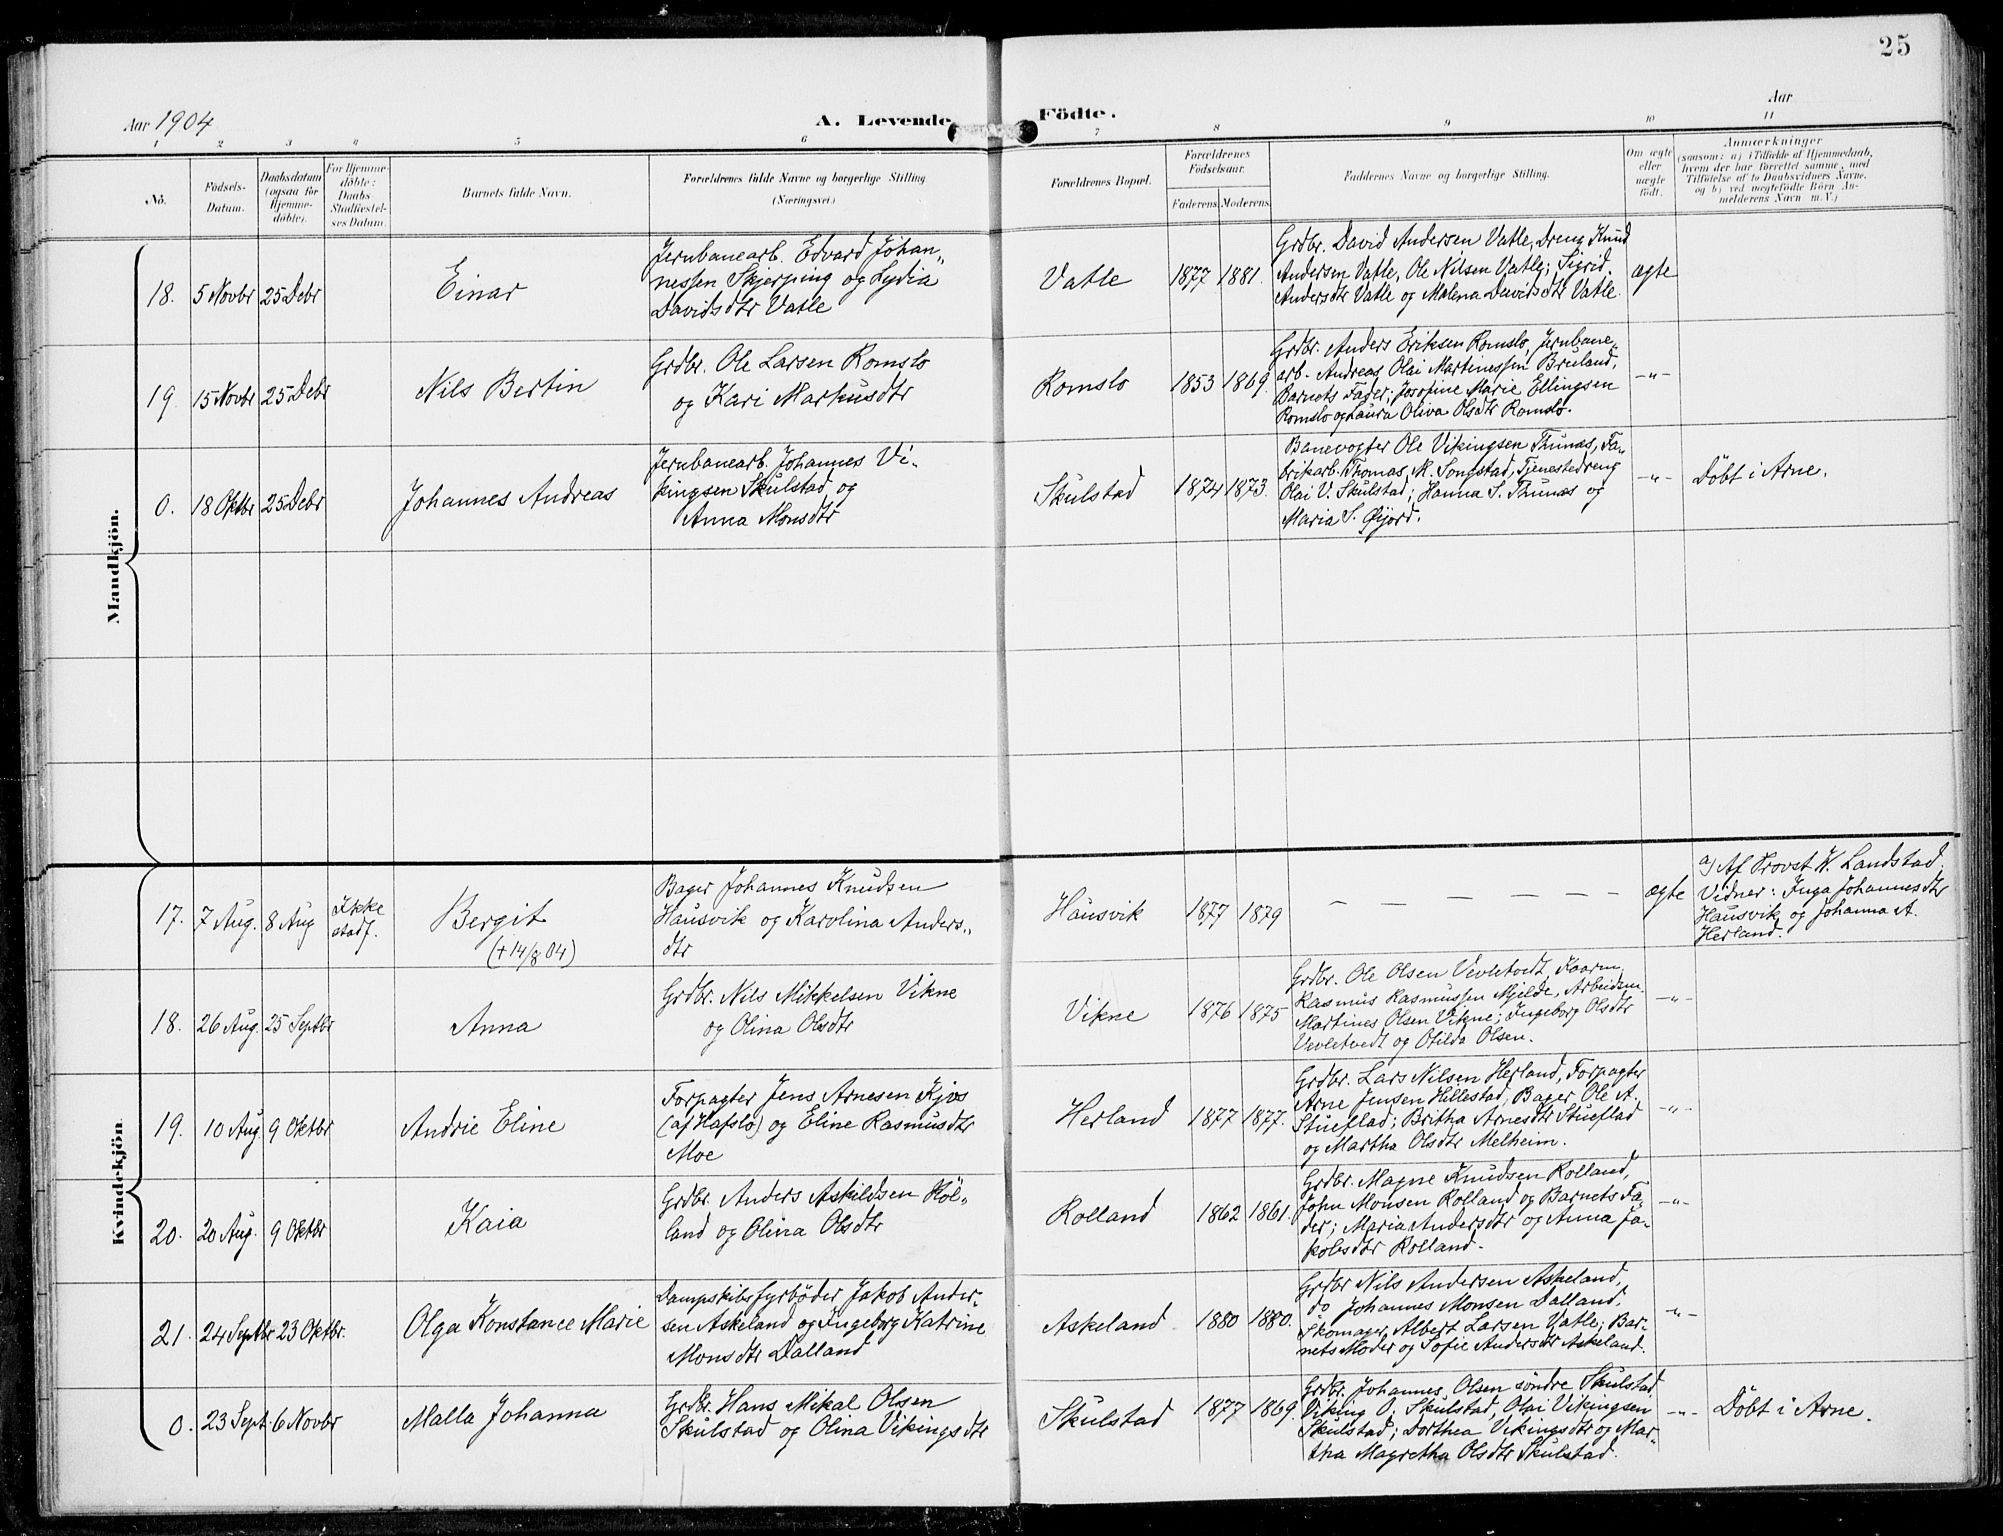 25
Aar 1904
A. Levende
Födte.
Aar
1
2
3
4
5
6
7
8
9
10
11
No.
Födsels-
Datum.
Daabsdatum
(ogsaa for
Hjemme-
døbte).
For Hjemme-
døbte:
Daabs
Stadfæstel-
ses Datum.
Barnets fulde Navn.
Forældrenes fulde Navne og borgerlige Stilling
(Næringsvei.)
Forældrenes Bopæl.
Forældrenes
Födselsaar.
Faderens.
Moderens.
Faddernes Navne og borgerlige Stilling.
Om ægte
eller
uægte
født.
Anmærkninger
(saasom: a) i Tilfælde af Hjemmedaab,
hvem der har forrettet samme, med
Tilföielse af to Daabsvidners Navne,
og b) ved uægtefödte Börn An-
melderens Navn m.V.)
Mandkjön.
18.
5 Novbr
25 Debr
Einar
Jernbanearb. Edvard Johan-
nessen Skjerping og Lydia
Davidsdtr Vatle
Vatle
1877
1881.
Grdbr. David Andersen Vatle, Dreng Knud
Andersen Vatle, Ole Nilsen Vatle; Sigrid
Andersdtr Vatle og Malena Davidsdtr Vatle.
ægte
19.
15 Novbr
25 Debr
Nils Bertin
Grdbr. Ole Larsen Romslo
og Kari Markusdtr
Romslo
1853
1869.
Grdbr. Anders Eriksen Romslo, Jernbane-
arb. Andreas Olai Martinessen Bruland,
Barnets Fader; Josefine Marie Ellingsen
Romslo og Laura Oliva Olsdtr Romslo.
—„—
0.
18 Oktbr
25 Debr
Johannes Andreas
Jernbanearb. Johannes Vi-
kingsen Skulstad og
Anna Monsdtr
Skulstad
1874
1873.
Banevogter Ole Vikingsen Thunæs, Fa-
brikarb. Thomas M. Songstad, Tjenestedreng
Olai V. Skulstad; Hanna S. Thunæs og
Maria S. Øijord.
—„—
Döbt i Arne.
Kvindekjön.
17.
7 Aug.
8 Aug
Ikke
stadf.
Bergit
(+14/8 04)
Bager Johannes Knudsen
Hausvik og Karolina Anders-
dtr
Hausvik
1877
1879
— — — — — —
ægte
a) Af Provst K. Landstad.
Vidner: Inga Johannesdtr
Hausvik og Johanna A.
Herland.
18.
26 Aug.
25 Septbr
Anna
Grdbr. Nils Mikkelsen Vikne
og Olina Olsdtr
Vikne
1876
1875
Grdbr. Ole Olsen Vevletvedt, Kaarm.
Rasmus Rasmussen Mjelde, Arbeidsm.
Martines Olsen Vikne; Ingeborg Olsdtr
Vevletvedt og Otilda Olsen.
—„—
19.
10 Aug
9 Oktbr
Andrie Eline
Forpagter Jens Arnesen Kjos
(af Hafslo) og Eline Rasmusdtr
Moe
Herland
1877
1877.
Grdbr. Lars Nilsen Herland, Forpagter
Arne Jensen Hillestad, Bager Ole A.
Stueflad; Britha Arnesdtr Stueflad
og Martha Olsdtr Melheim.
—„—
20.
20 Aug.
9 Oktbr
Kaia
Grdbr. Anders Askildsen Röl-
land og Olina Olsdtr
Rolland
1862
1861.
Grdbr. Magne Knudsen Rolland,
John Monsen Rolland og Barnets Fa-
der; Maria Andersdtr og Anna Ja-
kobsdtr Rolland.
—„—
21.
24 Septbr
23 Oktbr.
Olga Konstance Marie
Dampskibsfyrbøder Jakob Ander-
sen Askeland og Ingeborg Katrine
Monsdtr Dalland
Askeland
1880
1880.
Grdbr Nils Andersen Askeland,
do Johannes Monsen Dalland,
Skomager Albert Larsen Vatle; Bar-
nets Moder og Sofie Andersdtr Askeland.
—„—
0.
23 Sept.
6 Novbr
Malla Johanna
Grdbr. Hans Mikal Olsen
Skulstad og Olina Vikingsdtr
Skulstad
1877
1869.
Grdbr. Johannes Olsen søndre Skulstad
Viking O. Skulstad, Olai Vikingsen
Skulstad; Dorthea Vikingsdtr og Mar-
tha Magretha Olsdtr Skulstad.
—„—
Döbt i Arne.